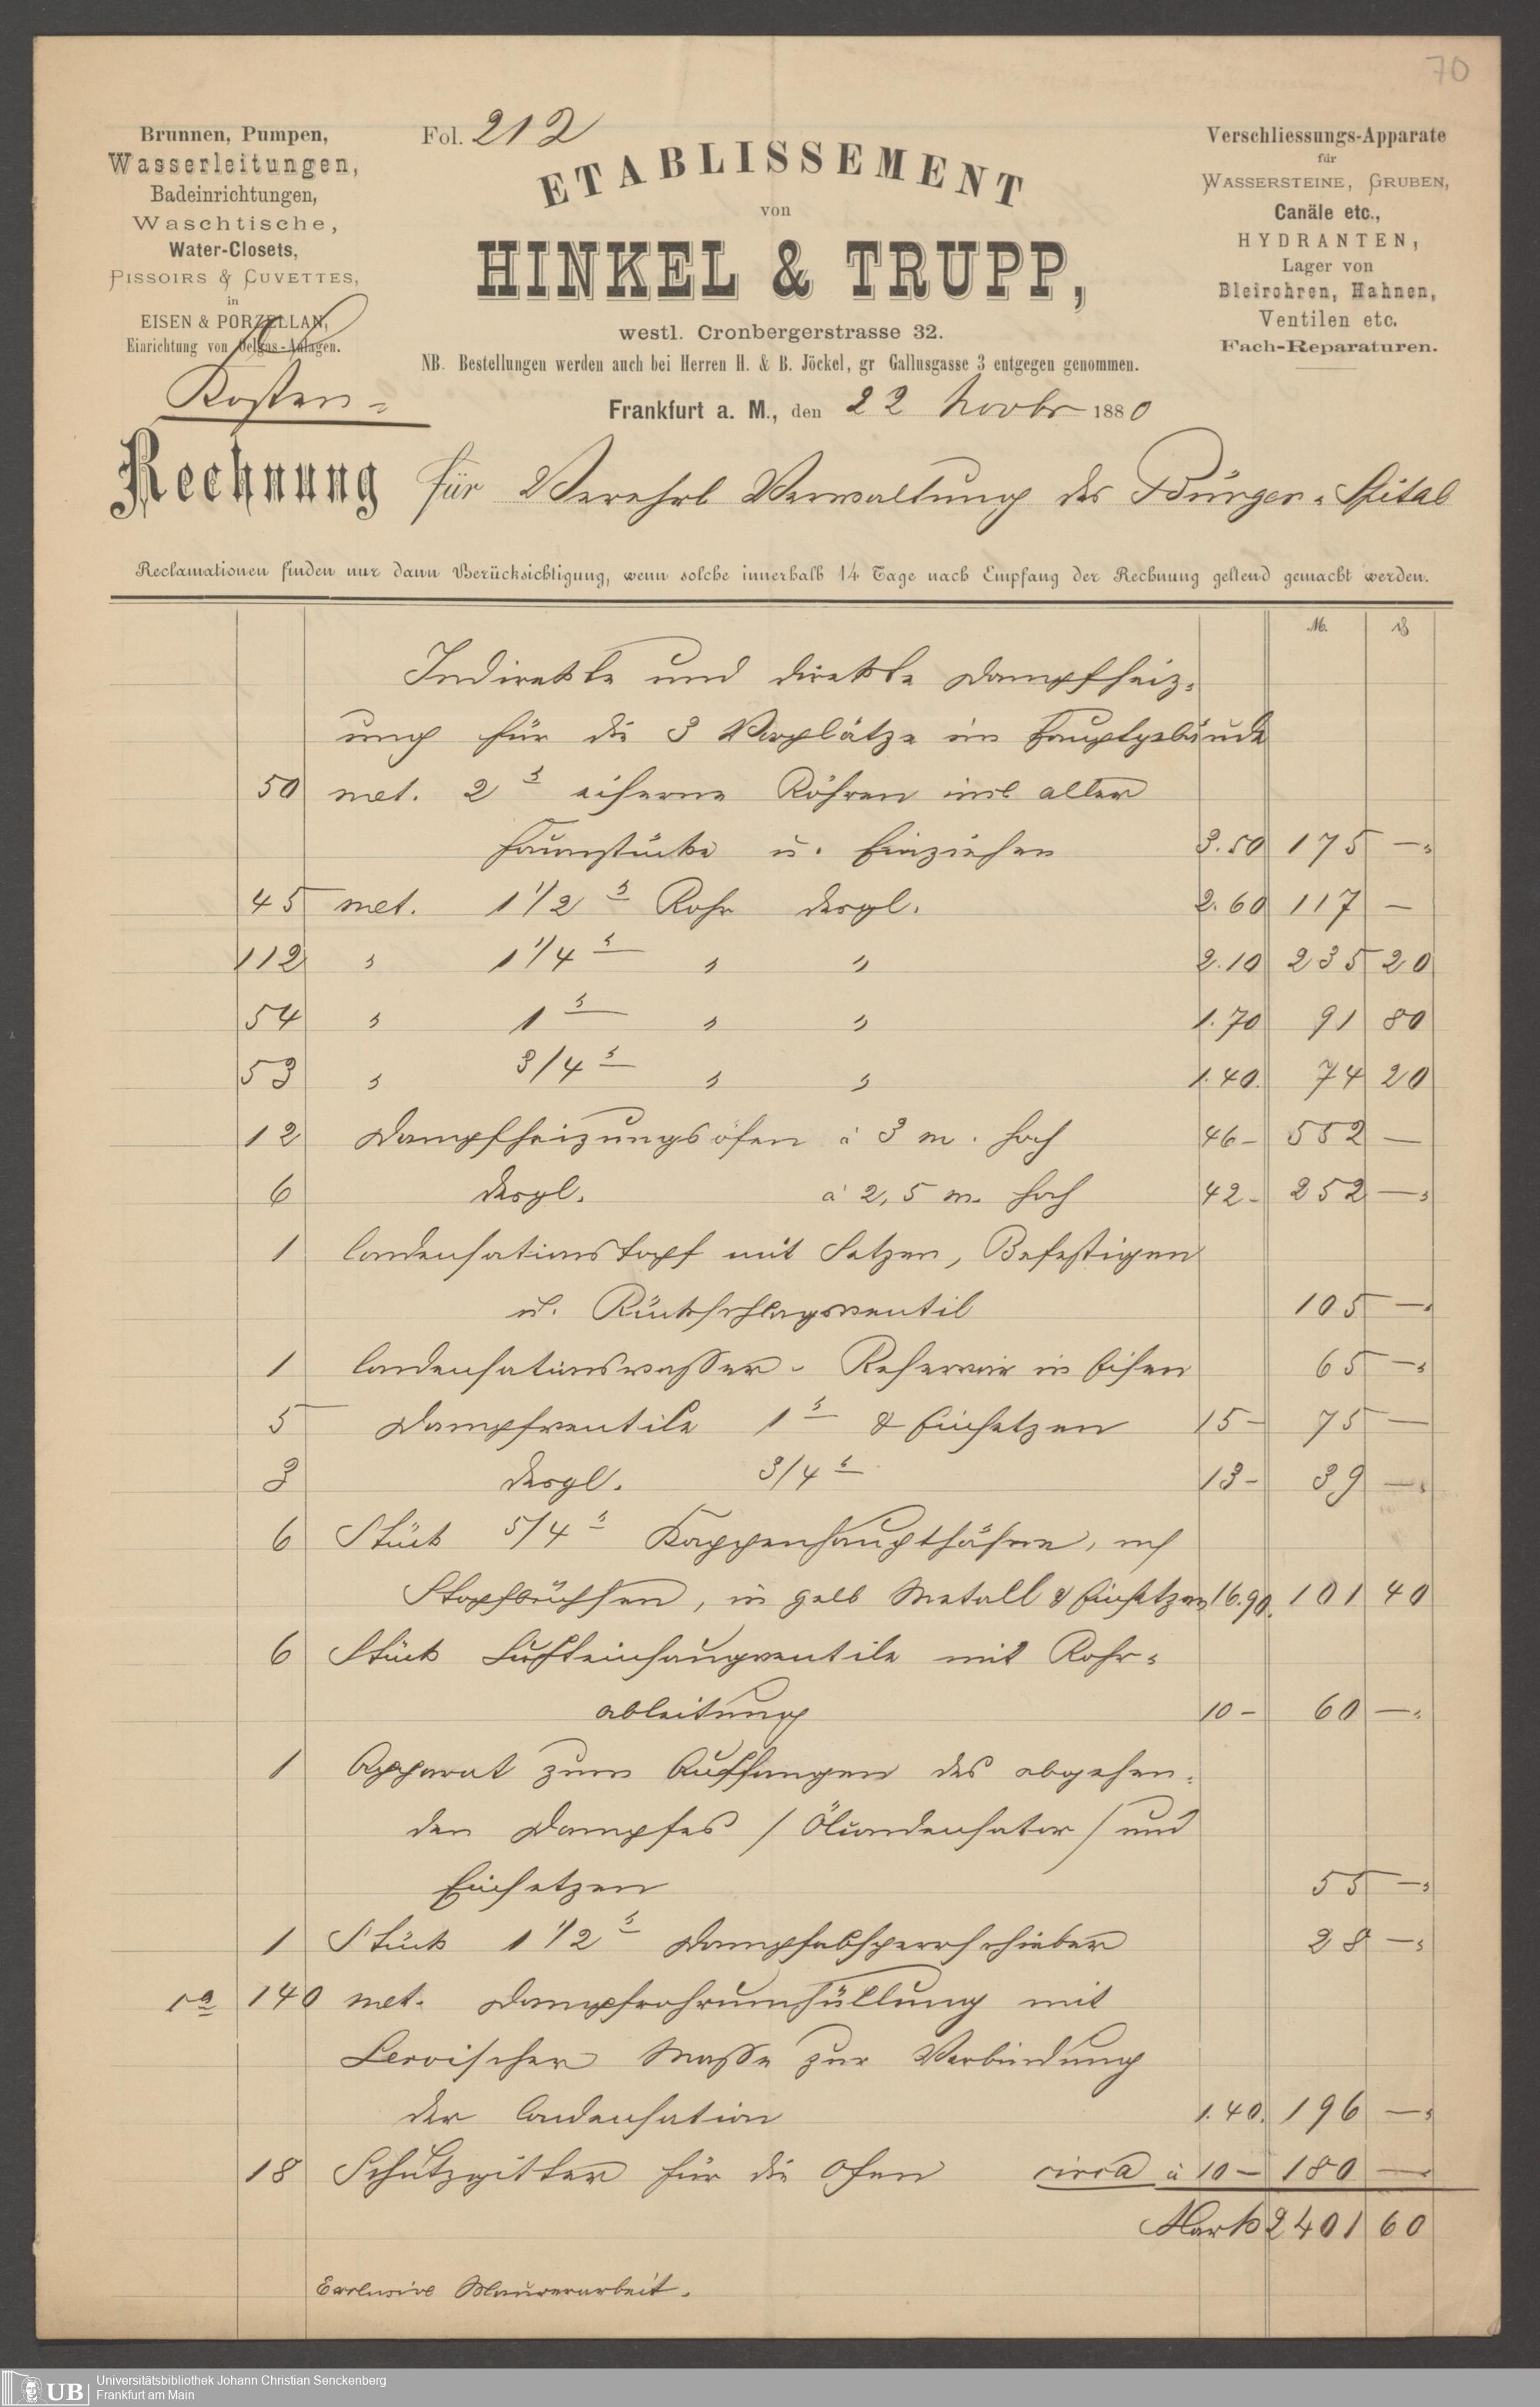 70
Brunnen, Pumpen,
Wasserleitungen,
Badeinrichtungen,
Waschtische,
Water-Closets,
PISSOIRS & CUVETTES,
in
EISEN & PORZELLAN,
Einrichtung von Oelgas-Anlagen.
Fol. 212
ETABLISSEMENT
von
HINKEL & TRUPP,
westl. Cronbergerstrasse 32.
NB. Bestellungen werden auch bei Herren H. & B. Jöckel, gr Gallusgasse 3 entgegen genommen.
Verschliessungs-Apparate
für
WASSERSTEINE, GRUBEN,
Canäle etc.,
HYDRANTEN,
Lager von
Bleirohren, Hahnen,
Ventilen etc.
Fach-Reparaturen.
Frankfurt a. M., den 22 Novbr 1880
Kosten-
Rechnung für Verehrl Verwaltung des Bürger-Spital
Reclamationen finden nur dann Berücksichtigung, wenn solche innerhalb 14 Tage nach Empfang der Rechnung geltend gemacht werden.
M. ₰
Indirekte und direkte Dampfheiz-
ung für die 3 Vorplätze im Hauptgebäude
50 met. 2" eiserne Röhren incl aller
Façonstücke u. Einziehen 3.50 175 —
45 met. 1 1/2" Rohr desgl. 2.60 117 —
112 " 1 1/4" " " 2.10 235 20
54 " 1" " " 1.70 91 80
53 " 3/4" " " 1.40 74 20
12 Dampfheizungsöfen à 3 m. hoch 46- 552 —
6 desgl. à 2,5 m. hoch 42- 252 —
1 Condensationstopf mit Setzen, Befestigen
u. Rückschlagsventil 105 —
1 Condensationswasser-Reservoir in Eisen 65 —
5 Dampfventile 1" & Einsetzen 15- 75 —
3 desgl. 3/4" 13- 39 —
6 Stück 5/4" Kappenhaupthähne,
Stopfbüchsen, in gelb Metall & Einsetzen 16.90. 101 40
6 Stück Lufteinsaugventile mit Rohr-
ableitung 10- 60 —
1 Apparat zum Auffangen des abgehen-
den Dampfes / Ölcondensator / und
Einsetzen 55 —
1 Stück 1 1/2" Dampfabsperrschieber 28 —
ca 140 met. Dampfrohrumhüllung mit
Leroischer Masse zur Verbindung
der Condensation 1.40. 196 —
18 Schutzgitter für die Ofen circa à 10- 180 —
Mark 2401 60
Exclusive Maurerarbeit.
UB
Universitätsbibliothek Johann Christian Senckenberg
Frankfurt am Main